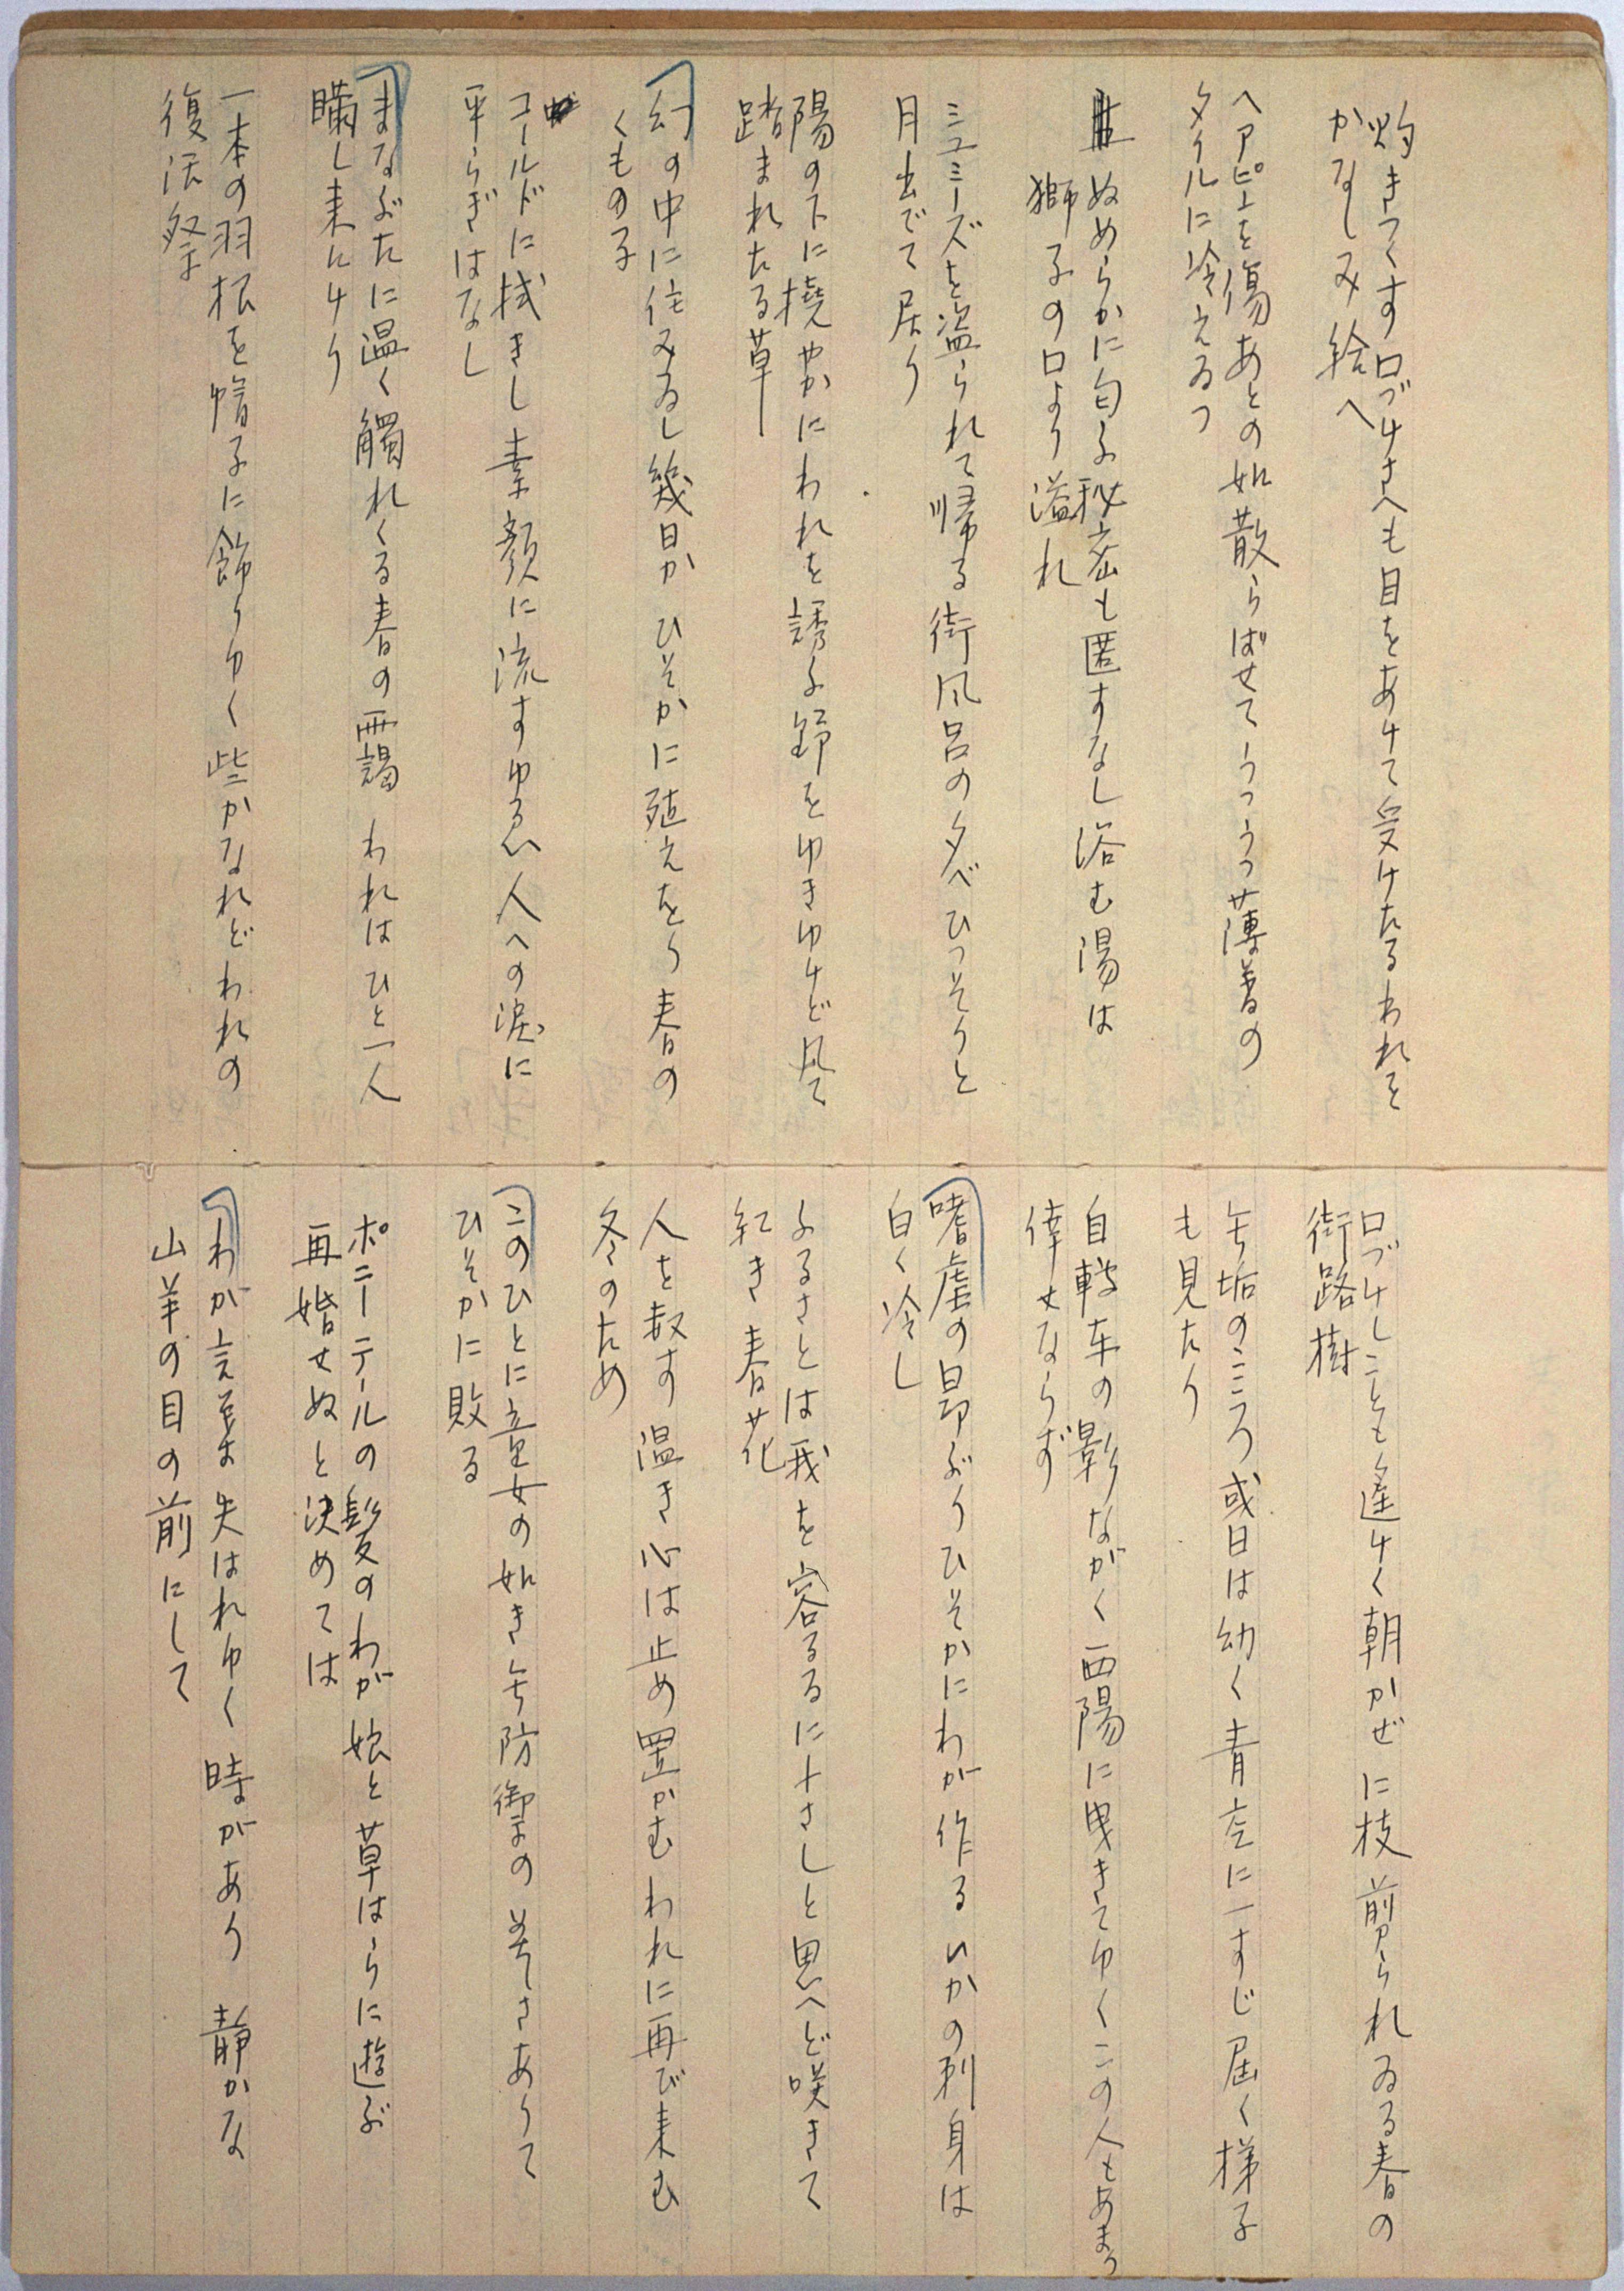 灼きつくす口づけさへも目をあけて受けたるわれを
かなしみ給へ
ヘアピンを傷あとの如散らばせてうつうつ薄着の
タイルに冷えゐつ
ぬめらかに匂ふ秘密も匿すなし浴む湯は
獅子の口より溢れ
ミュミーズを盗られて帰る街風呂の夕べひつそりと
月出でて居り
陽の下に撓やかにわれを誘ふ野をゆきゆけど凡て
踏まれたる草
幻の中に住みゐし幾日か ひそかに殖えをり春の
くもの子
コールドに拭きし素顔に流すゆゑ人への涙に
平らぎはなし
まなぶたに温く觸れくる春の霸 われはひと一人
瞞し来にけり
一本の羽根を帽子に飾りゆく些かなれどわれの
復活祭
口づけしことも遙けく朝かぜに枝剪られゐる春の
街路樹
無垢のこころ或日は幼く青空に一すじ届く梯子
も見たり
自轉車の影ながく西陽に曳きてゆくこの人もあまり
倖せならず
嗜虐の昂ぶりひそかにわが作るいかの刺身は
白く冷し
ふるさとは我を容るるに十さしと思へど咲きて
紅き春花
人を敎す温き心は止め置かむわれに再び来む
冬のため
このひとに童女の如き無防禦の美しさありて
ひそかに敗る
ポニーテールの髪のわが娘と草はらに遊ぶ
再婚せぬと決めては
わが言葉失はれゆく時があり 静かな
山羊の目の前にして